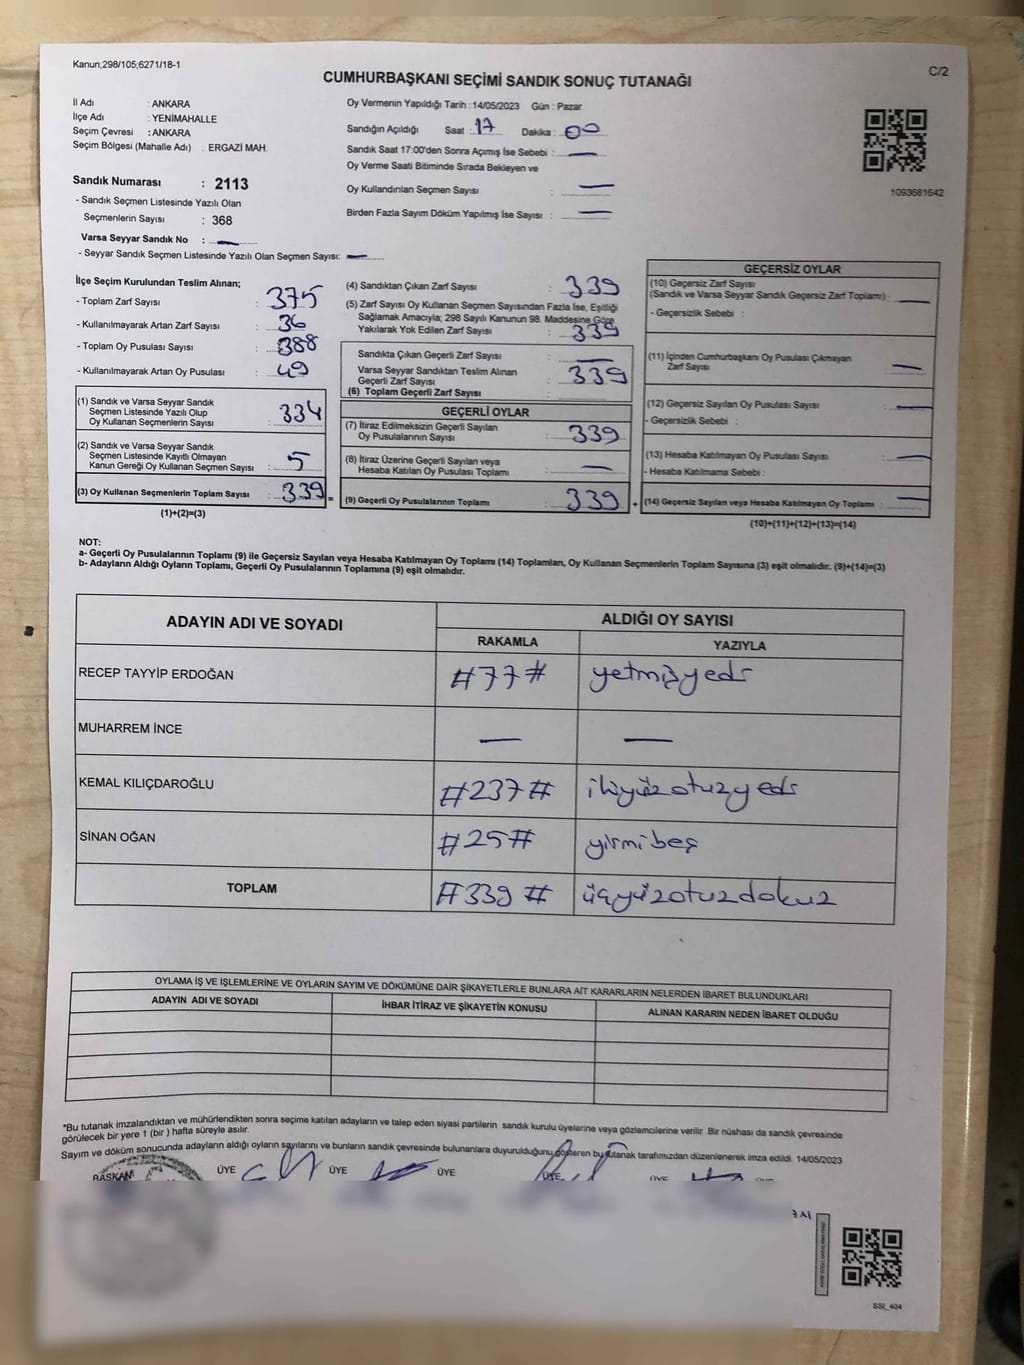 Kanun;298/105;6271/18-1
C/2
CUMHURBAŞKANI SEÇİMİ SANDIK SONUÇ TUTANAĞI
İl Adı : ANKARA
İlçe Adı : YENİMAHALLE
Seçim Çevresi : ANKARA
Seçim Bölgesi (Mahalle Adı) : ERGAZİ MAH.
Sandık Numarası : 2113
- Sandık Seçmen Listesinde Yazılı Olan
Seçmenlerin Sayısı : 368
Varsa Seyyar Sandık No : —
- Seyyar Sandık Seçmen Listesinde Yazılı Olan Seçmen Sayısı: —
Oy Vermenin Yapıldığı Tarih : 14/05/2023 Gün : Pazar
Sandığın Açıldığı Saat : 17 Dakika : 00
Sandık Saat 17:00'den Sonra Açımış İse Sebebi : —
Oy Verme Saati Bitiminde Sırada Bekleyen ve
Oy Kullandırılan Seçmen Sayısı : —
Birden Fazla Sayım Döküm Yapılmış İse Sayısı : —
1093681642
İlçe Seçim Kurulundan Teslim Alınan;
- Toplam Zarf Sayısı : 375
- Kullanılmayarak Artan Zarf Sayısı : 36
- Toplam Oy Pusulası Sayısı : 388
- Kullanılmayarak Artan Oy Pusulası : 49
(1) Sandık ve Varsa Seyyar Sandık
Seçmen Listesinde Yazılı Olup
Oy Kullanan Seçmenlerin Sayısı : 334
(2) Sandık ve Varsa Seyyar Sandık
Seçmen Listesinde Kayıtlı Olmayan
Kanun Gereği Oy Kullanan Seçmen Sayısı : 5
(3) Oy Kullanan Seçmenlerin Toplam Sayısı : 339 =
(1)+(2)=(3)
(4) Sandıktan Çıkan Zarf Sayısı : 339
(5) Zarf Sayısı Oy Kullanan Seçmen Sayısından Fazla İse, Eşitliği
Sağlamak Amacıyla; 298 Sayılı Kanunun 98. Maddesine Göre
Yakılarak Yok Edilen Zarf Sayısı : —
Sandıkta Çıkan Geçerli Zarf Sayısı : 339
Varsa Seyyar Sandıktan Teslim Alınan
Geçerli Zarf Sayısı : —
(6) Toplam Geçerli Zarf Sayısı : 339
GEÇERLİ OYLAR
(7) İtiraz Edilmeksizin Geçerli Sayılan
Oy Pusulalarının Sayısı : 339
(8) İtiraz Üzerine Geçerli Sayılan veya
Hesaba Katılan Oy Pusulası Toplamı : —
(9) Geçerli Oy Pusulalarının Toplamı : 339 +
GEÇERSİZ OYLAR
(10) Geçersiz Zarf Sayısı
(Sandık ve Varsa Seyyar Sandık Geçersiz Zarf Toplamı) : —
- Geçersizlik Sebebi :
(11) İçinden Cumhurbaşkanı Oy Pusulası Çıkmayan
Zarf Sayısı : —
(12) Geçersiz Sayılan Oy Pusulası Sayısı : —
- Geçersizlik Sebebi :
(13) Hesaba Katılmayan Oy Pusulası Sayısı : —
- Hesaba Katılmama Sebebi :
(14) Geçersiz Sayılan veya Hesaba Katılmayan Oy Toplamı : —
(10)+(11)+(12)+(13)=(14)
NOT:
a- Geçerli Oy Pusulalarının Toplamı (9) ile Geçersiz Sayılan veya Hesaba Katılmayan Oy Toplamı (14) Toplamları, Oy Kullanan Seçmenlerin Toplam Sayısına (3) eşit olmalıdır. (9)+(14)=(3)
b- Adayların Aldığı Oyların Toplamı, Geçerli Oy Pusulalarının Toplamına (9) eşit olmalıdır.
ADAYIN ADI VE SOYADI ALDIĞI OY SAYISI
RAKAMLA YAZIYLA
RECEP TAYYİP ERDOĞAN #77# yetmişyedi
MUHARREM İNCE — —
KEMAL KILIÇDAROĞLU #237# ikiyüzotuzyedi
SİNAN OĞAN #25# yirmibeş
TOPLAM #339# üçyüzotuzdokuz
OYLAMA İŞ VE İŞLEMLERİNE VE OYLARIN SAYIM VE DÖKÜMÜNE DAİR ŞİKAYETLERLE BUNLARA AİT KARARLARIN NELERDEN İBARET BULUNDUKLARI
ADAYIN ADI VE SOYADI İHBAR İTİRAZ VE ŞİKAYETİN KONUSU ALINAN KARARIN NEDEN İBARET OLDUĞU
*Bu tutanak imzalandıktan ve mühürlendikten sonra seçime katılan adayların ve talep eden siyasi partilerin sandık kurulu üyelerine veya gözlemcilerine verilir. Bir nüshası da sandık çevresinde
görülecek bir yere 1 (bir ) hafta süreyle asılır.
Sayım ve döküm sonucunda adayların aldığı oyların sayılarını ve bunların sandık çevresinde bulunanlara duyurulduğunu gösteren bu tutanak tarafımızdan düzenlenerek imza edildi. 14/05/2023
BAŞKAN ÜYE ÜYE ÜYE ÜYE ÜYE ÜYE
SSI_404